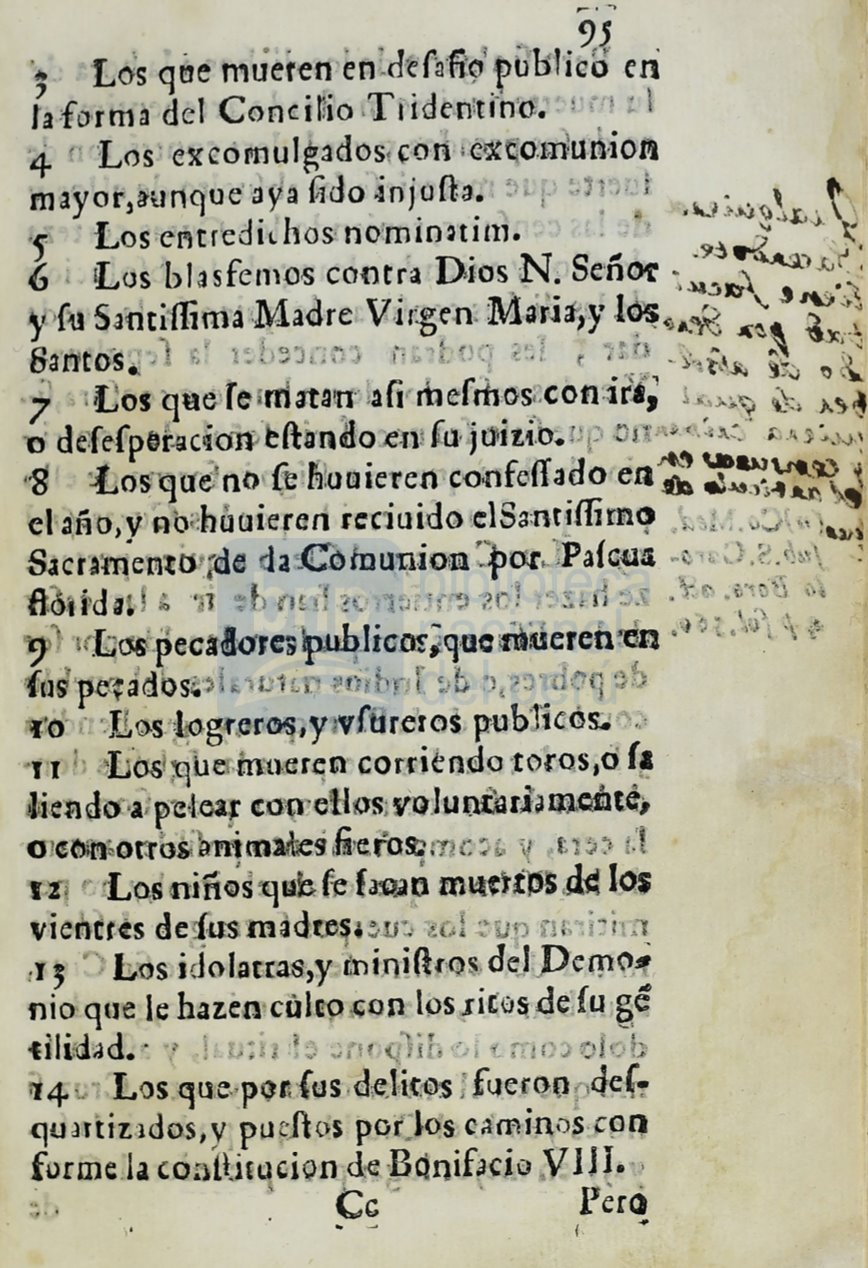 95
3 Los que mueren en desafio publico en
la forma del Concilio Tridentino.
4 Los excomulgados con excomunion
mayor, aunque aya sido injusta.
5 Los entredichos nominatim.
6 Los blasfemos contra Dios N. Señor
y su Santissima Madre Virgen Maria, y los
Santos.
7 Los que se matan asi mesmos con ira,
o desesperacion estando en su juizio.
8 Los que no se huuieren confessado en
el año, y no huuieren reciuido el Santissimo
Sacramento de la Comunion por Pascua
florida.
9 Los pecadores publicos, que mueren en
sus pecados.
10 Los logreros, y vsureros publicos.
11 Los que mueren corriendo toros, o sa
liendo a pelear con ellos voluntariamente,
o con otros animales fieros.
12 Los niños que se sacan muertos de los
vientres de sus madres.
13 Los idolatras, y ministros del Demo-
nio que le hazen culto con los ritos de su gẽ
tilidad.
14 Los que por sus delitos fueron des-
quartizados, y puestos por los caminos con
forme la constitucion de Bonifacio VIII.
Cc Pero